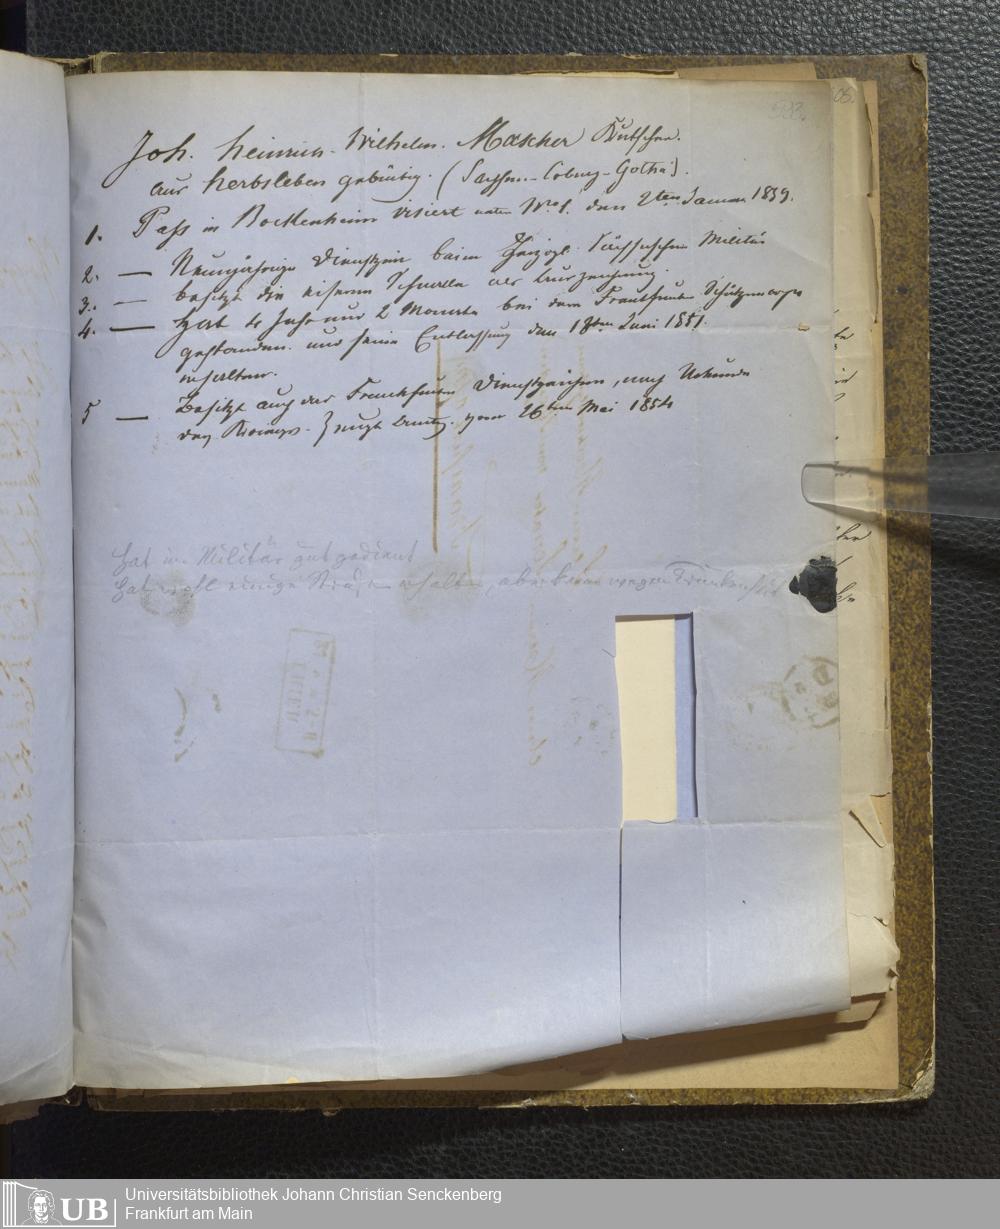 Joh. Heinrich. Wilhelm. Mäscher Kutscher.
aus Herbsleben gebürtig. (Sachsen-Coburg-Gotha).
1. Pass in Bockenheim visiert unter No 1. den 2ten Januar 1859.
2. — Neunjährige Dienstzeit beim Herzogl. Sächsischen Militär
3. — besitzt die eiserne Schnalle als Auszeichnung.
4. — Hat 4 Jahr und 2 Monate bei dem Frankfurter Schützencorps
gestanden. und seine Entlassung den 18ten Juni 1851.
erhalten.
5 — Besitzt auch das Frankfurter Dienstzeichen, nach Urkunde
des Kriegs-Zeugt Amts. vom 26ten Mai 1854
Hat im Militär gut gedient
Hat wohl einige Strafen erhalten, aber keine wegen Trunkenheit
Universitätsbibliothek Johann Christian Senckenberg
Frankfurt am Main
UB